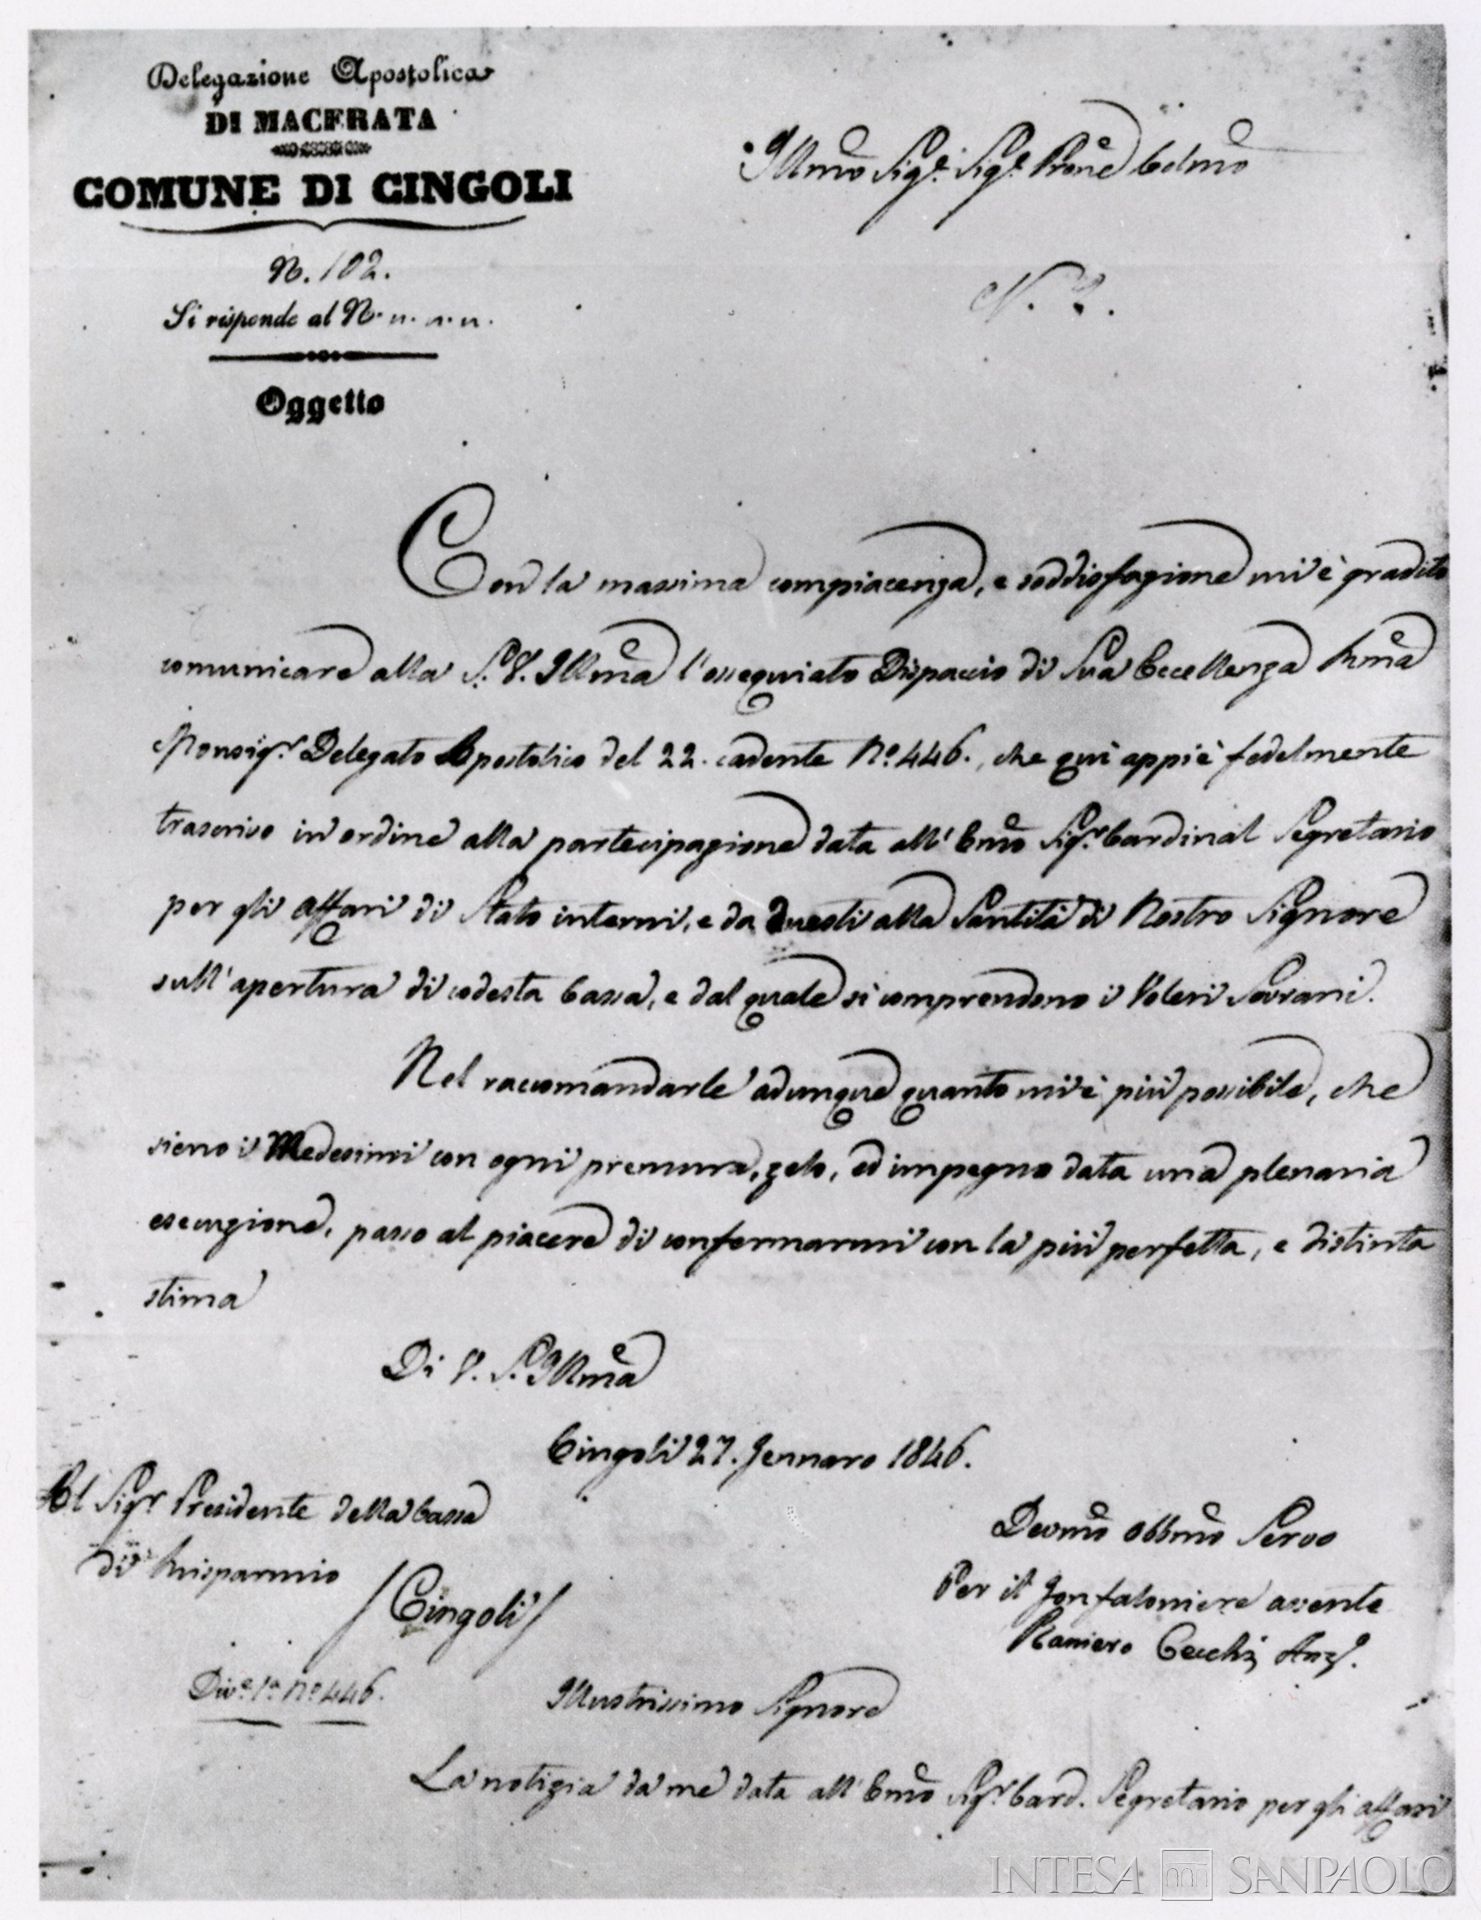 Delegazione Apostolica
DI MACERATA
COMUNE DI CINGOLI
N. 102.
Si risponde al N.
Oggetto
Illmo Sigr. Sigr. Prone Colmo
N. 2.
Con la massima compiacenza, e soddisfazione mi è gradito
comunicare alla S. V. Illma l'ossequiato Dispaccio di Sua Eccellenza Rma
Monsigr Delegato Apostolico del 22. cadente No. 446., che quì appiè fedelmente
trascrivo in ordine alla partecipazione data all'Emo Sigr Cardinal Segretario
per gli affari di Stato interni, e da Questi alla Santità di Nostro Signore
sull'apertura di codesta Cassa, e dal quale si comprendono i Voleri Sovrani.
Nel raccomandarle adunque quanto mi è più possibile, che
sieno i Medesimi con ogni premura, zelo, ed impegno data una plenaria
esecuzione, passo al piacere di confermarmi con la più perfetta, e distinta
stima
Di V. S. Illma
Cingoli 27. Gennaro 1846.
Al Sigr Presidente della Cassa
di Risparmio
/Cingoli/
Devmo Obbmo Servo
Per il Gonfaloniere assente
Raniero Cecchi Anzo.
Dive. 1a No 446.
Illustrissimo Signore
La notizia da me data all'Emo Sigr Card. Segretario per gli affari
INTESA SANPAOLO